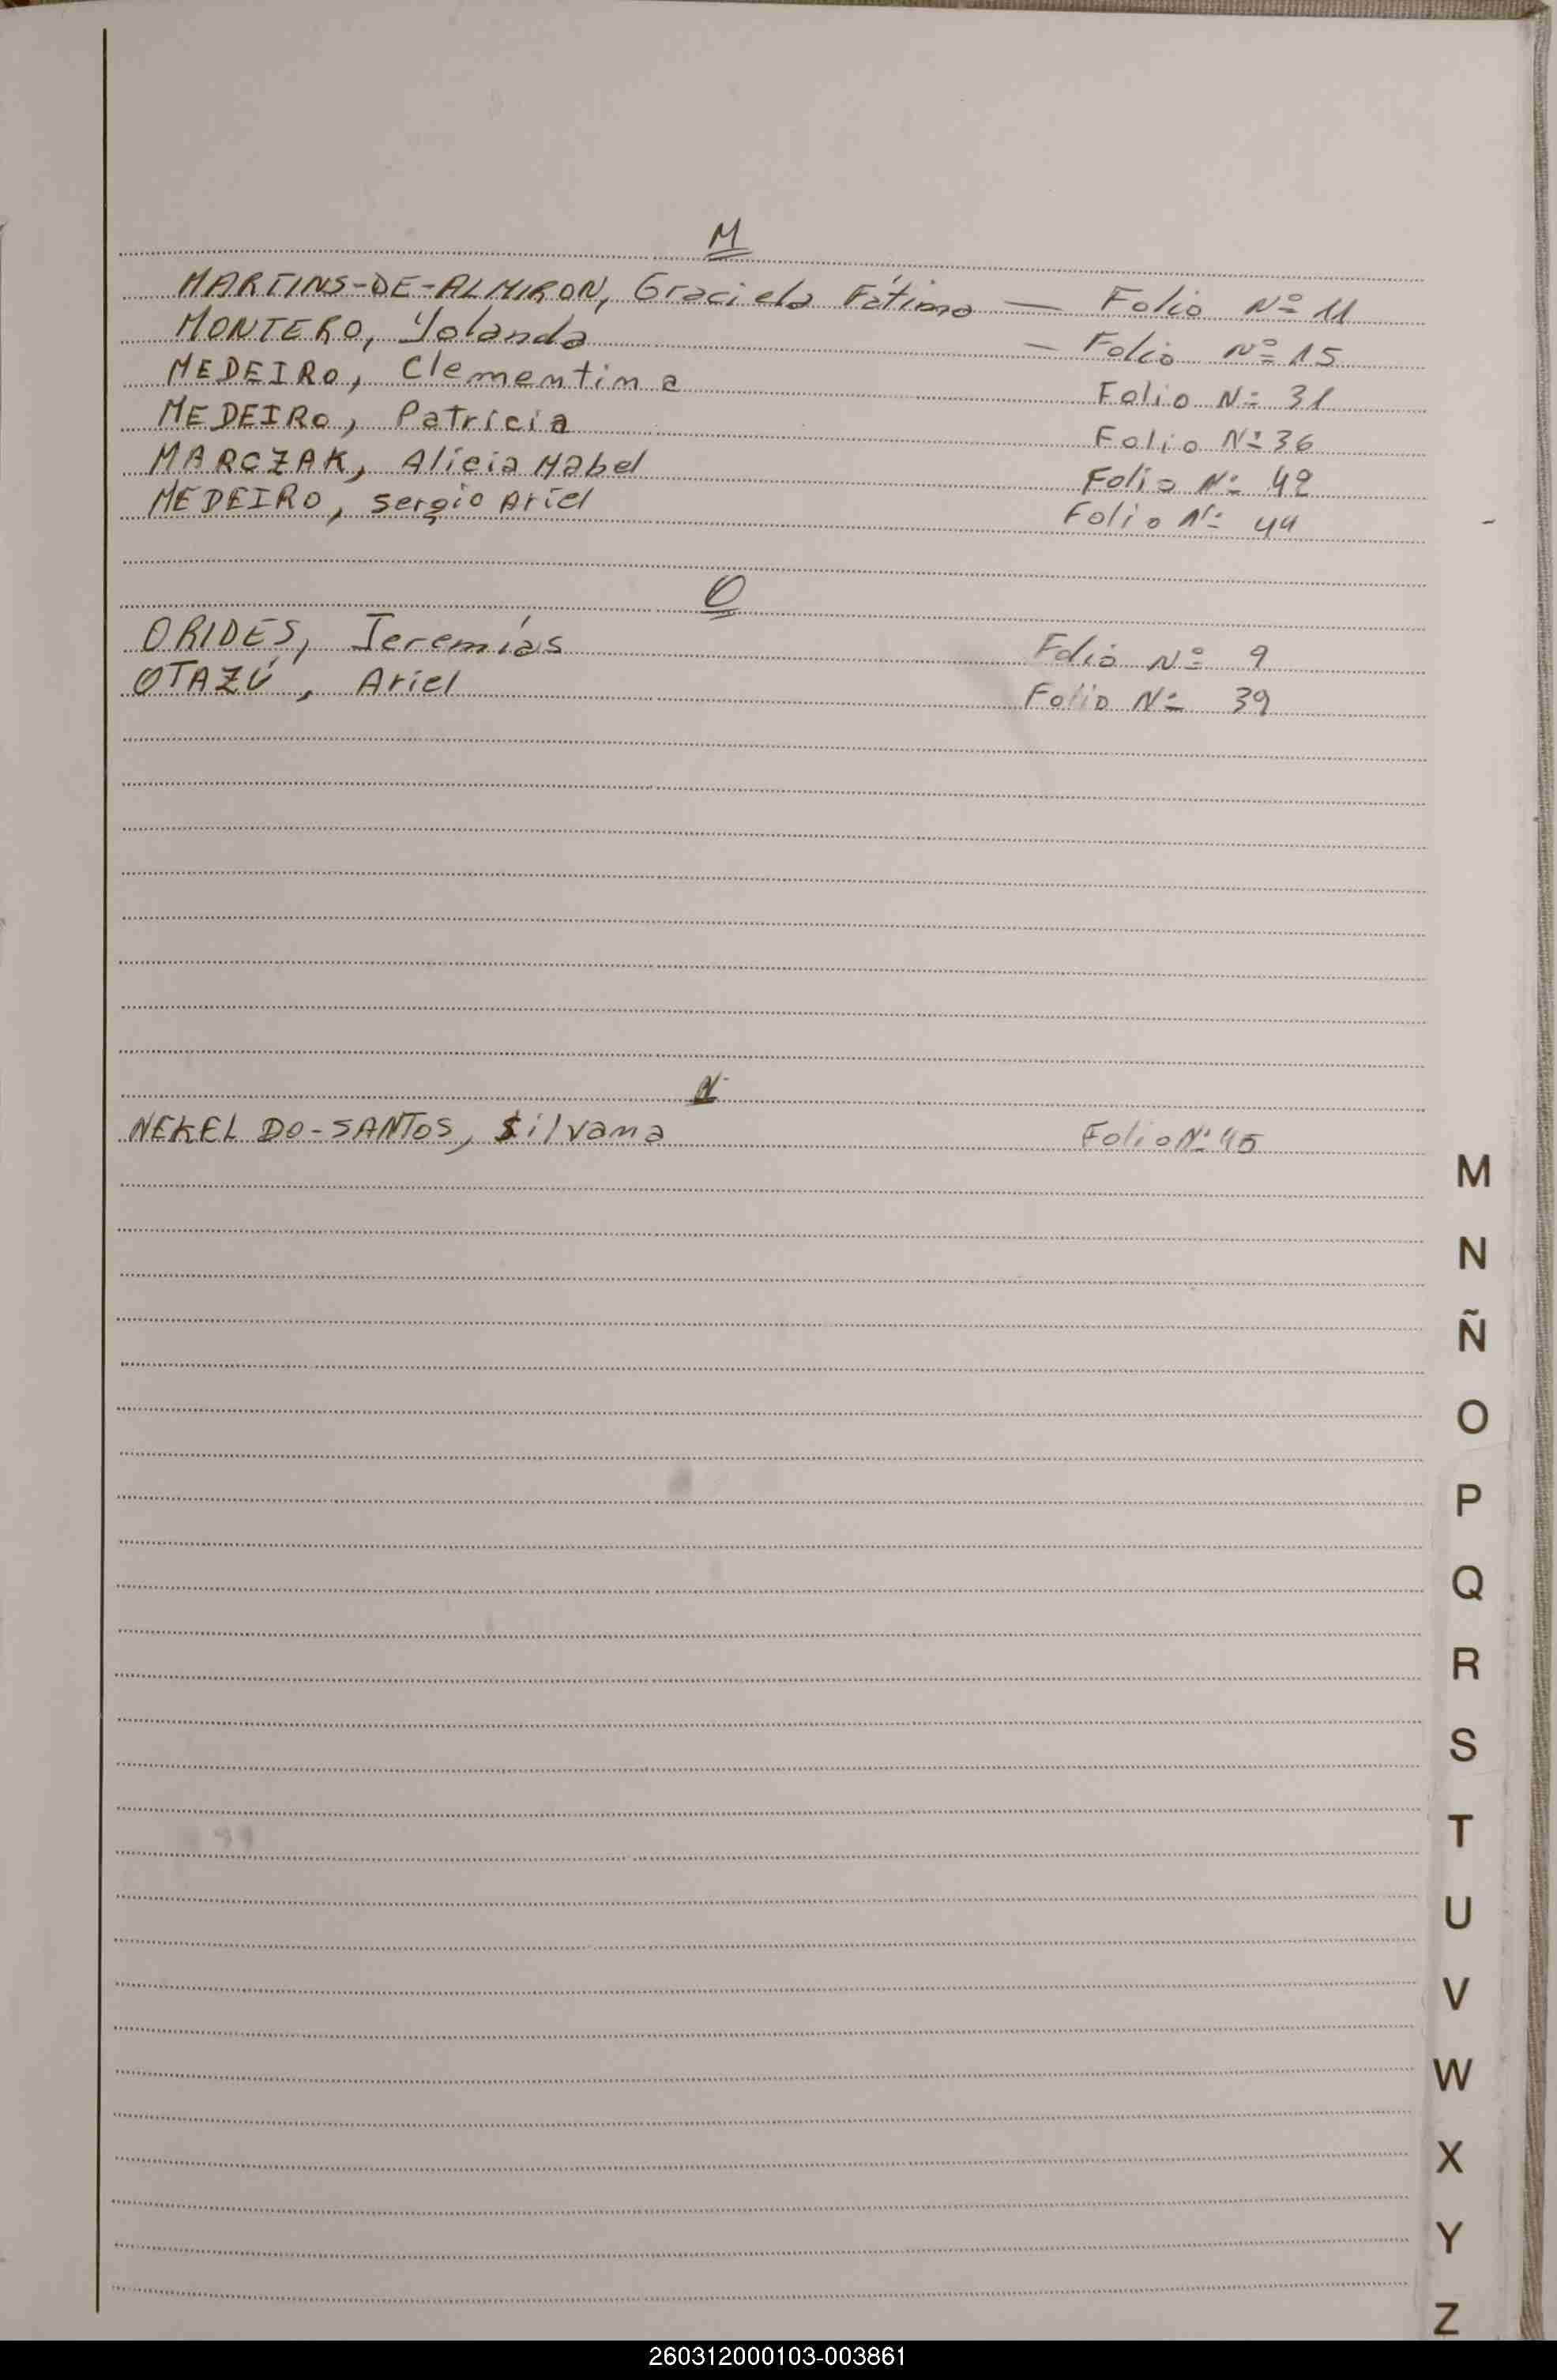 M
MARTINS-DE-ALMIRON, Graciela Fátima — Folio Nº 11
MONTERO, Yolanda — Folio Nº 15
MEDEIRO, Clementina Folio Nº 31
MEDEIRO, Patricia Folio Nº 36
MARCZAK, Alicia Mabel Folio Nº 42
MEDEIRO, Sergio Ariel Folio Nº 44
O
ORIDES, Jeremías Folio Nº 9
OTAZÚ, Ariel Folio Nº 39
N
NEKEL DO-SANTOS, Silvana Folio Nº 45
M
N
Ñ
O
P
Q
R
S
T
U
V
W
X
Y
Z
260312000103-003861